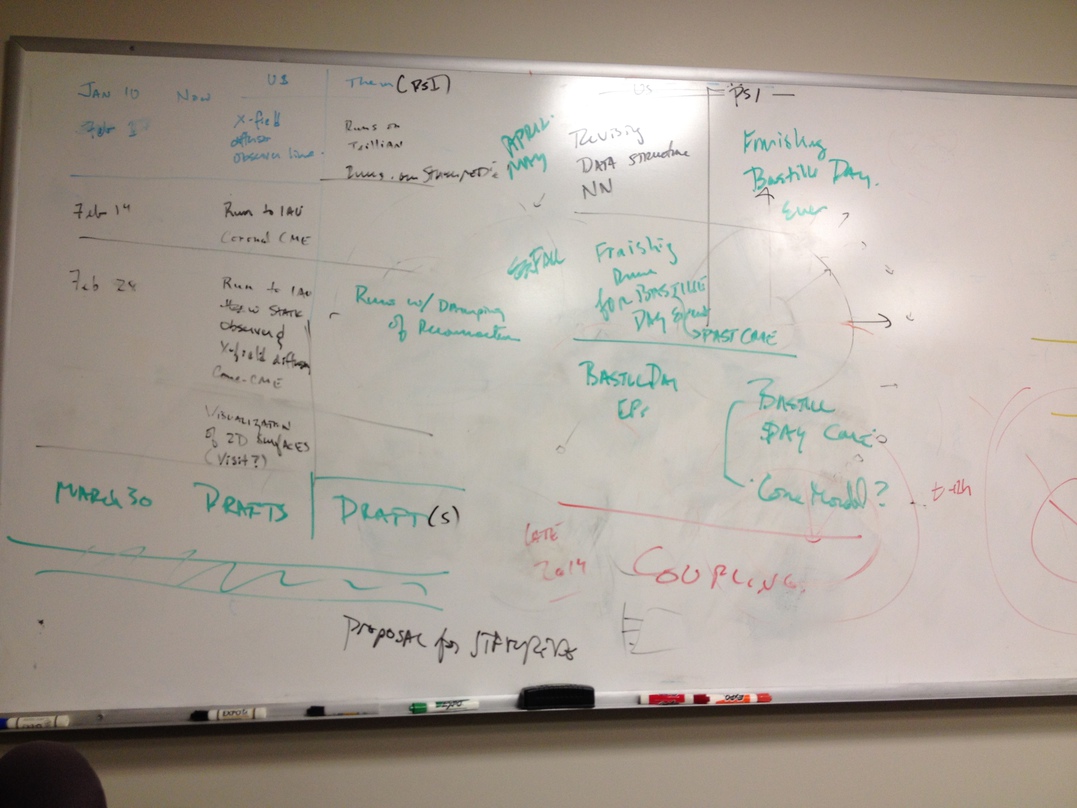 JAN 10 Now US Them (PSI)
X-field
observer line.
Runs on
Trillian
Feb 14 Run to 1AU
Coronal CME
Feb 28 Run to 1AU
observed
X-field diffusion
Cone-CME
Visualization
of 2D Surfaces
(Visit?)
Runs w/ Damping
of Reconnection
MARCH 30 DRAFTS DRAFT(S)
Proposal for
US PSI —
APRIL-
MAY
Revising
DATA Structure
NN
Finishing
Bastille Day.
FALL
Finishing
Runs
FOR BASTILLE
DAY Event
PAST CME
BASTILLE DAY
EPs
BASTILLE
DAY CME
Cone Model?
LATE
2014
COUPLING
EXPO
EXPO
EXPO